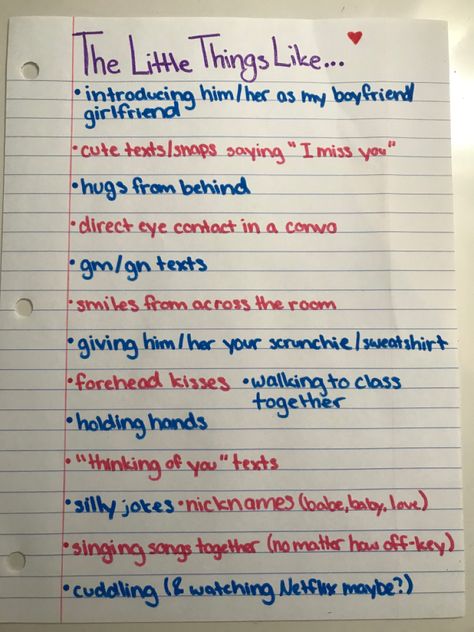 The Little Things Like...
•introducing him/her as my boyfriend/
girlfriend
•cute texts/snaps saying "I miss you"
•hugs from behind
•direct eye contact in a convo
•gm/gn texts
•smiles from across the room
•giving him/her your scrunchie/sweatshirt
•forehead kisses •walking to class
together
•holding hands
•"thinking of you" texts
•silly jokes •nicknames (babe, baby, love)
•singing songs together (no matter how off-key)
•cuddling (& watching Netflix maybe?)